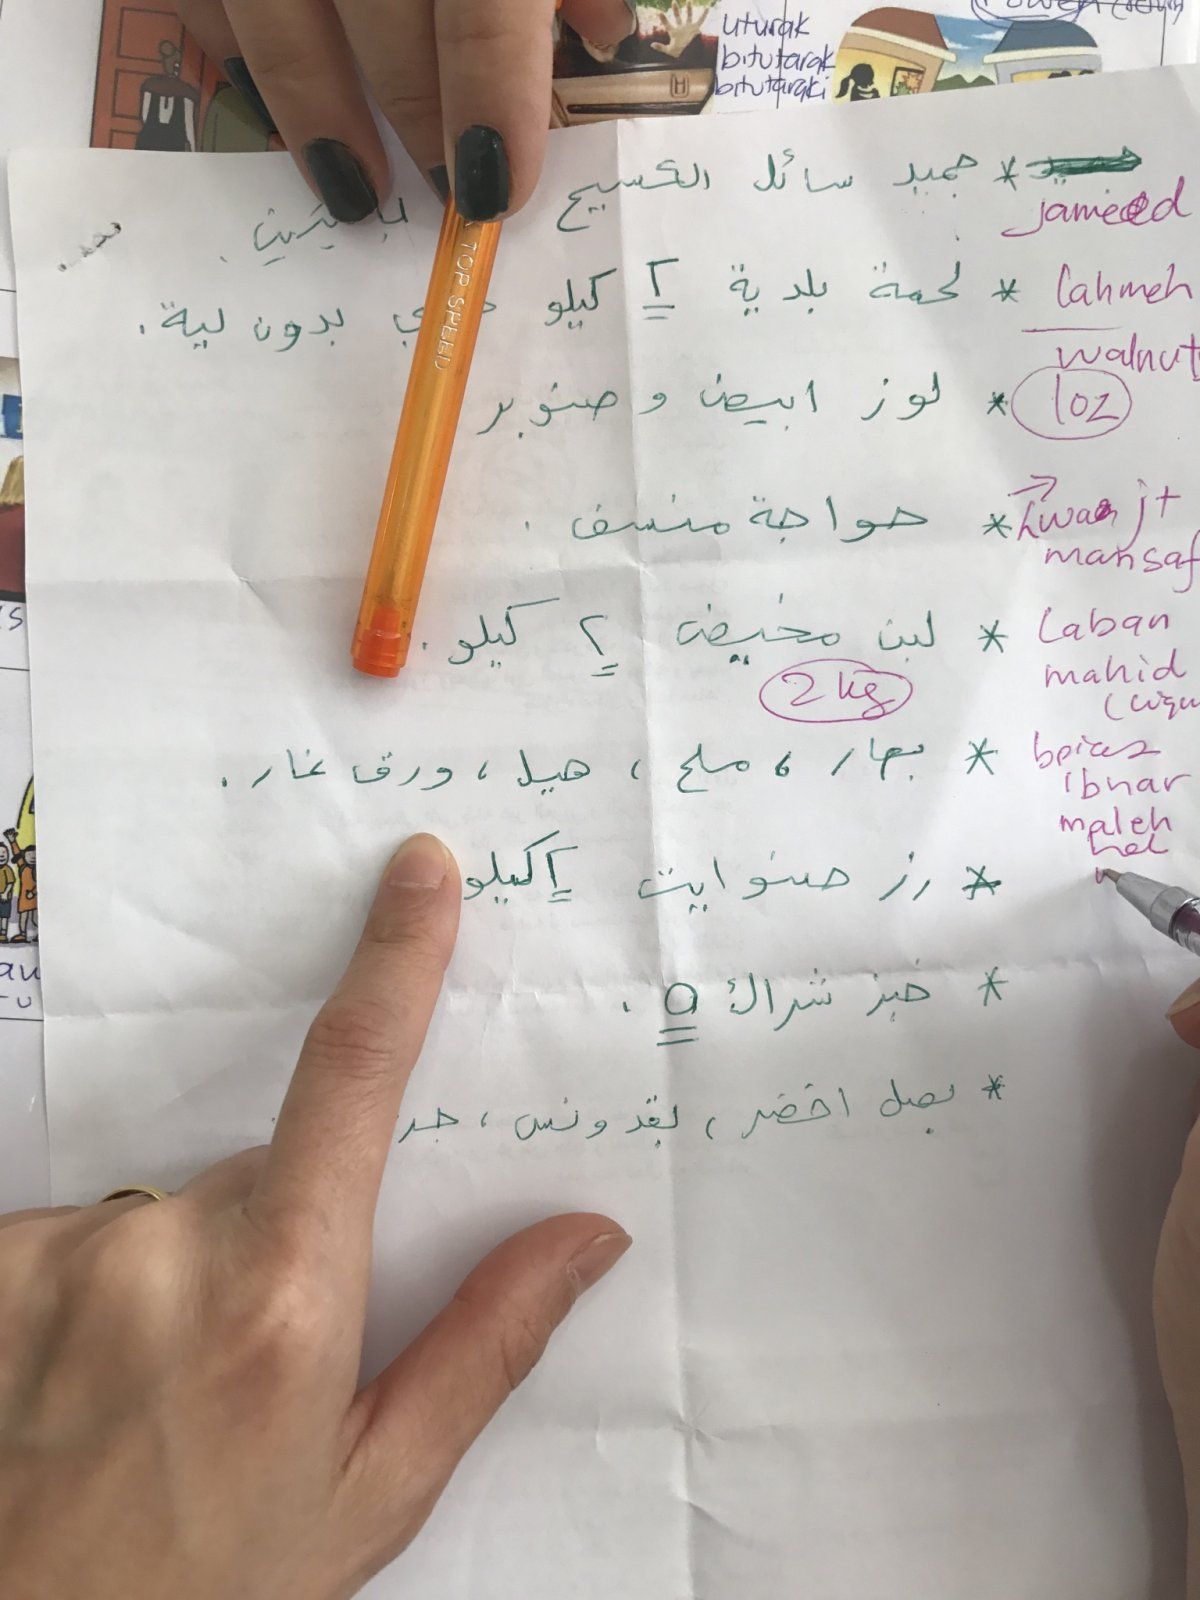 uturak
bitutarak
bitutaraki
* جميد سائل الكسيح
jameed
* لحمة بلدية ٢ كيلو بدون لية.
lahmeh
walnut
* لوز ابيض و صنوبر
loz
* حواجة منسف.
mansaf
* لبن مخيض ٢ كيلو.
Laban
mahid
2 kg
* بهار، ملح، هيل، ورق غار.
ibhar
maleh
hel
* رز صنوايت ٢ كيلو
* خبز شراك ٥.
* بصل اخضر، بقدونس،
TOP SPEED